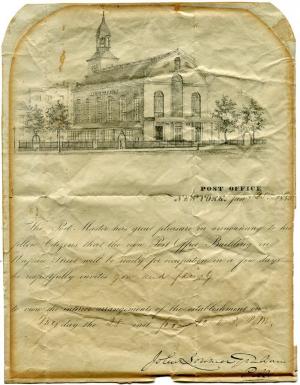 POST OFFICE
NEW YORK, Jan
The Post Master has great pleasure in announcing to his
fellow Citizens that the new Post Office Building in
Nassau Street will be ready for occupation in a few days
he respectfully invites you and family
to view the interior arrangements of the establishment on
day the inst from
John Lorimer Graham